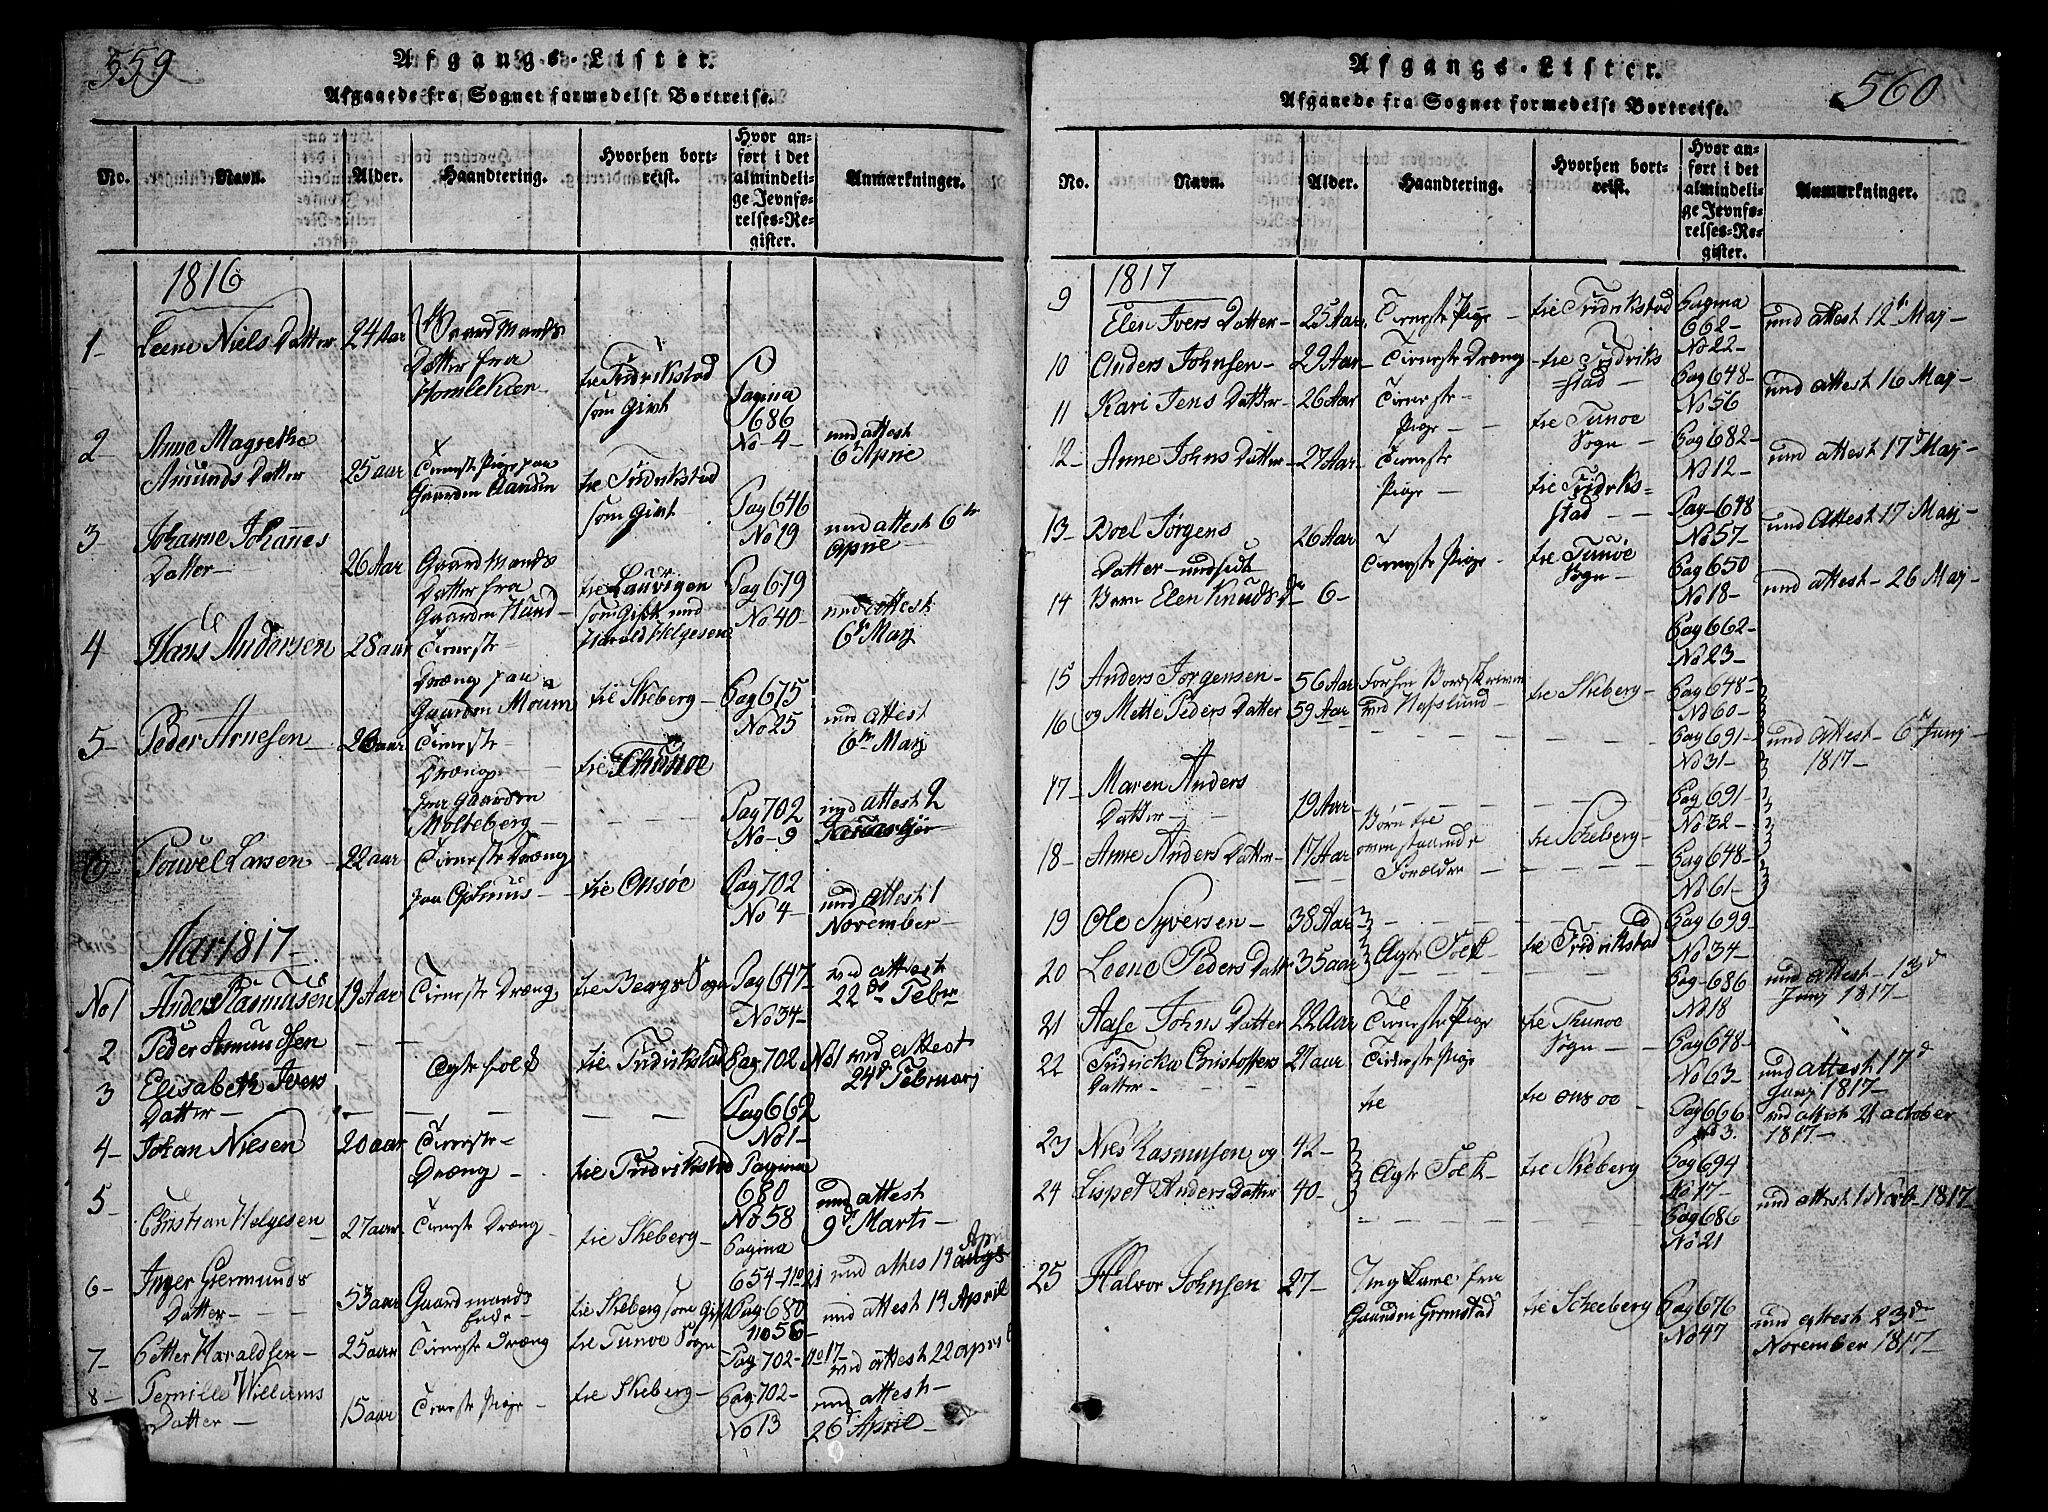 559
Afgangs-Lister.
Afgaaede fra Sognet formedelst Bortreise.
No. Navn. Alder. Haandtering. Hvorhen bortreist. Hvor anført i det almindelige Jevnførelses-Register. Anmærkninger.
1816
1 Leene Niels Datter 24 Aar Gaardmands Datter fra Homlekiær til Fridrikstad som Gift Pagina 686 No 4 med attest 6te Aprie
2 Anne Magrethe Amunds Datter 25 aar Tieneste Pige paa Gaarden Aanden til Fridrikstad som Gift Pag 646 No 19 med attest 6te Aprie
3 Johanne Johannes Datter 26 Aar Gaardmands Datter fra Gaarden Hund til Laurvigen som Gift med Harald Helgesen Pag 679 No 40 med attest 6te Maij
4 Hans Andersen 28 aar Tieneste Dræng paa Gaarden Moum til Skeberg Pag 675 No 25 med attest 6te Maij
5 Peder Arnesen 26 aar Tieneste Dræng fra gaarden Molteberg til Thunoe Pag 702 No 9 med attest 2 Januarij
6 Pouvel Larsen 22 aar Tieneste Dræng paa til Onsøe Pag 702 No 4 med attest 1 November
Aar 1817
No 1 Anders Rasmusen 19 Aar Tieneste Dræng til Bergs Sogn Pag 647 No 34 med attest 22de Febr
2 Peder Amundsen Ægte folk til Fridrikstad Pag 702 No 1 med attest 24de Februarij
3 Elisabeth Ivers Datter Pag 662 No 1
4 Johan Nielsen 20 aar Tieneste Dræng til Fridrikstad Pagina 680 No 58 med attest 9de Marti
5 Christian Helgesen 27 aar Tieneste Dræng til Skeberg Pagina 654 No 21 med attes 14 April
6 Inger Germunds Datter 53 aar Gaardmands Enke til Skeberg som Gift Pag 680 No 56 med attest 14 April
7 Petter Haraldsen 25 aar Tieneste Dræng til Tunoe Sogn Pag 702 No 17 med attest 22 april
8 Pernille Willums Datter 15 aar Tieneste Pige til Skeberg Pag 702 No 13 med attest 26 April
560
Afgangs-Lister.
Afgaaede fra Sognet formedelst Bortreise.
No. Navn. Alder. Haandtering. Hvorhen bortreist. Hvor anført i det almindelige Jevnførelses-Register. Anmærkninger.
1817
9 Elen Ivers Datter 25 Aar Tieneste Pige til Fridrikstad Pagina 662 No 22 med attest 12te Maj
10 Anders Johnsen 29 Aar Tieneste Dræng til Fridrikstad Pag 648 No 56 med attest 16 Maj
11 Kari Jens Datter 26 Aar Tieneste Pige til Tunoe Sogn Pag 682 No 12 med attest 17de Maj
12 Anne Johns Datter 27 Aar Tieneste Pige til Fridrikstad Pag 648 No 57 med Attest 17 Maj
13 Boel Jørgens Datter 26 Aar Tieneste Pige til Tunøe Sogn Pag 650 No 18 med attest 26 Maj
14 Barn Elen Knuds Dr 6 Pag 662 No 23
15 Anders Jørgensen 56 Aar ved Hafslund til Skeberg Pag 648 No 60
16 og Mette Peders Datter 59 Aar Pag 691 No 31 med attest 6te Junij 1817
17 Maren Anders Datter 19 Aar Pag 691 No 32
18 Anne Anders Datter 17 Aar Børn til ovenstaaende Forældre til Scheberg Pag 648 No 61
19 Ole Syversen 38 Aar Pag 699 No 34
20 Leene Peders Datter 35 aar Ægte Folk til Fridrikstad Pag 686 No 18 med attest 13de Junij 1817
21 Aase Johns Datter 22 Aar Tieneste Pige til Thunoe Sogn Pag 648 No 63 med attest 17de Junij 1817
22 Fridricka Christoffers Datter 21 aar Tieneste Pige til til onsoe Pag 666 No 3. med attest 21 october 1817
23 Niels Rasmusen og 42 Ægte Folk til Skeberg Pag 694 No 17
24 Lispet Anders Datter 40 Pag 686 No 21 med attest 1 Novb 1817
25 Halvor Johnsen 27 Ung Karl fra Gaarden Grimstad til Scheeberg Pag 676 No 47 med attest 23de November 1817